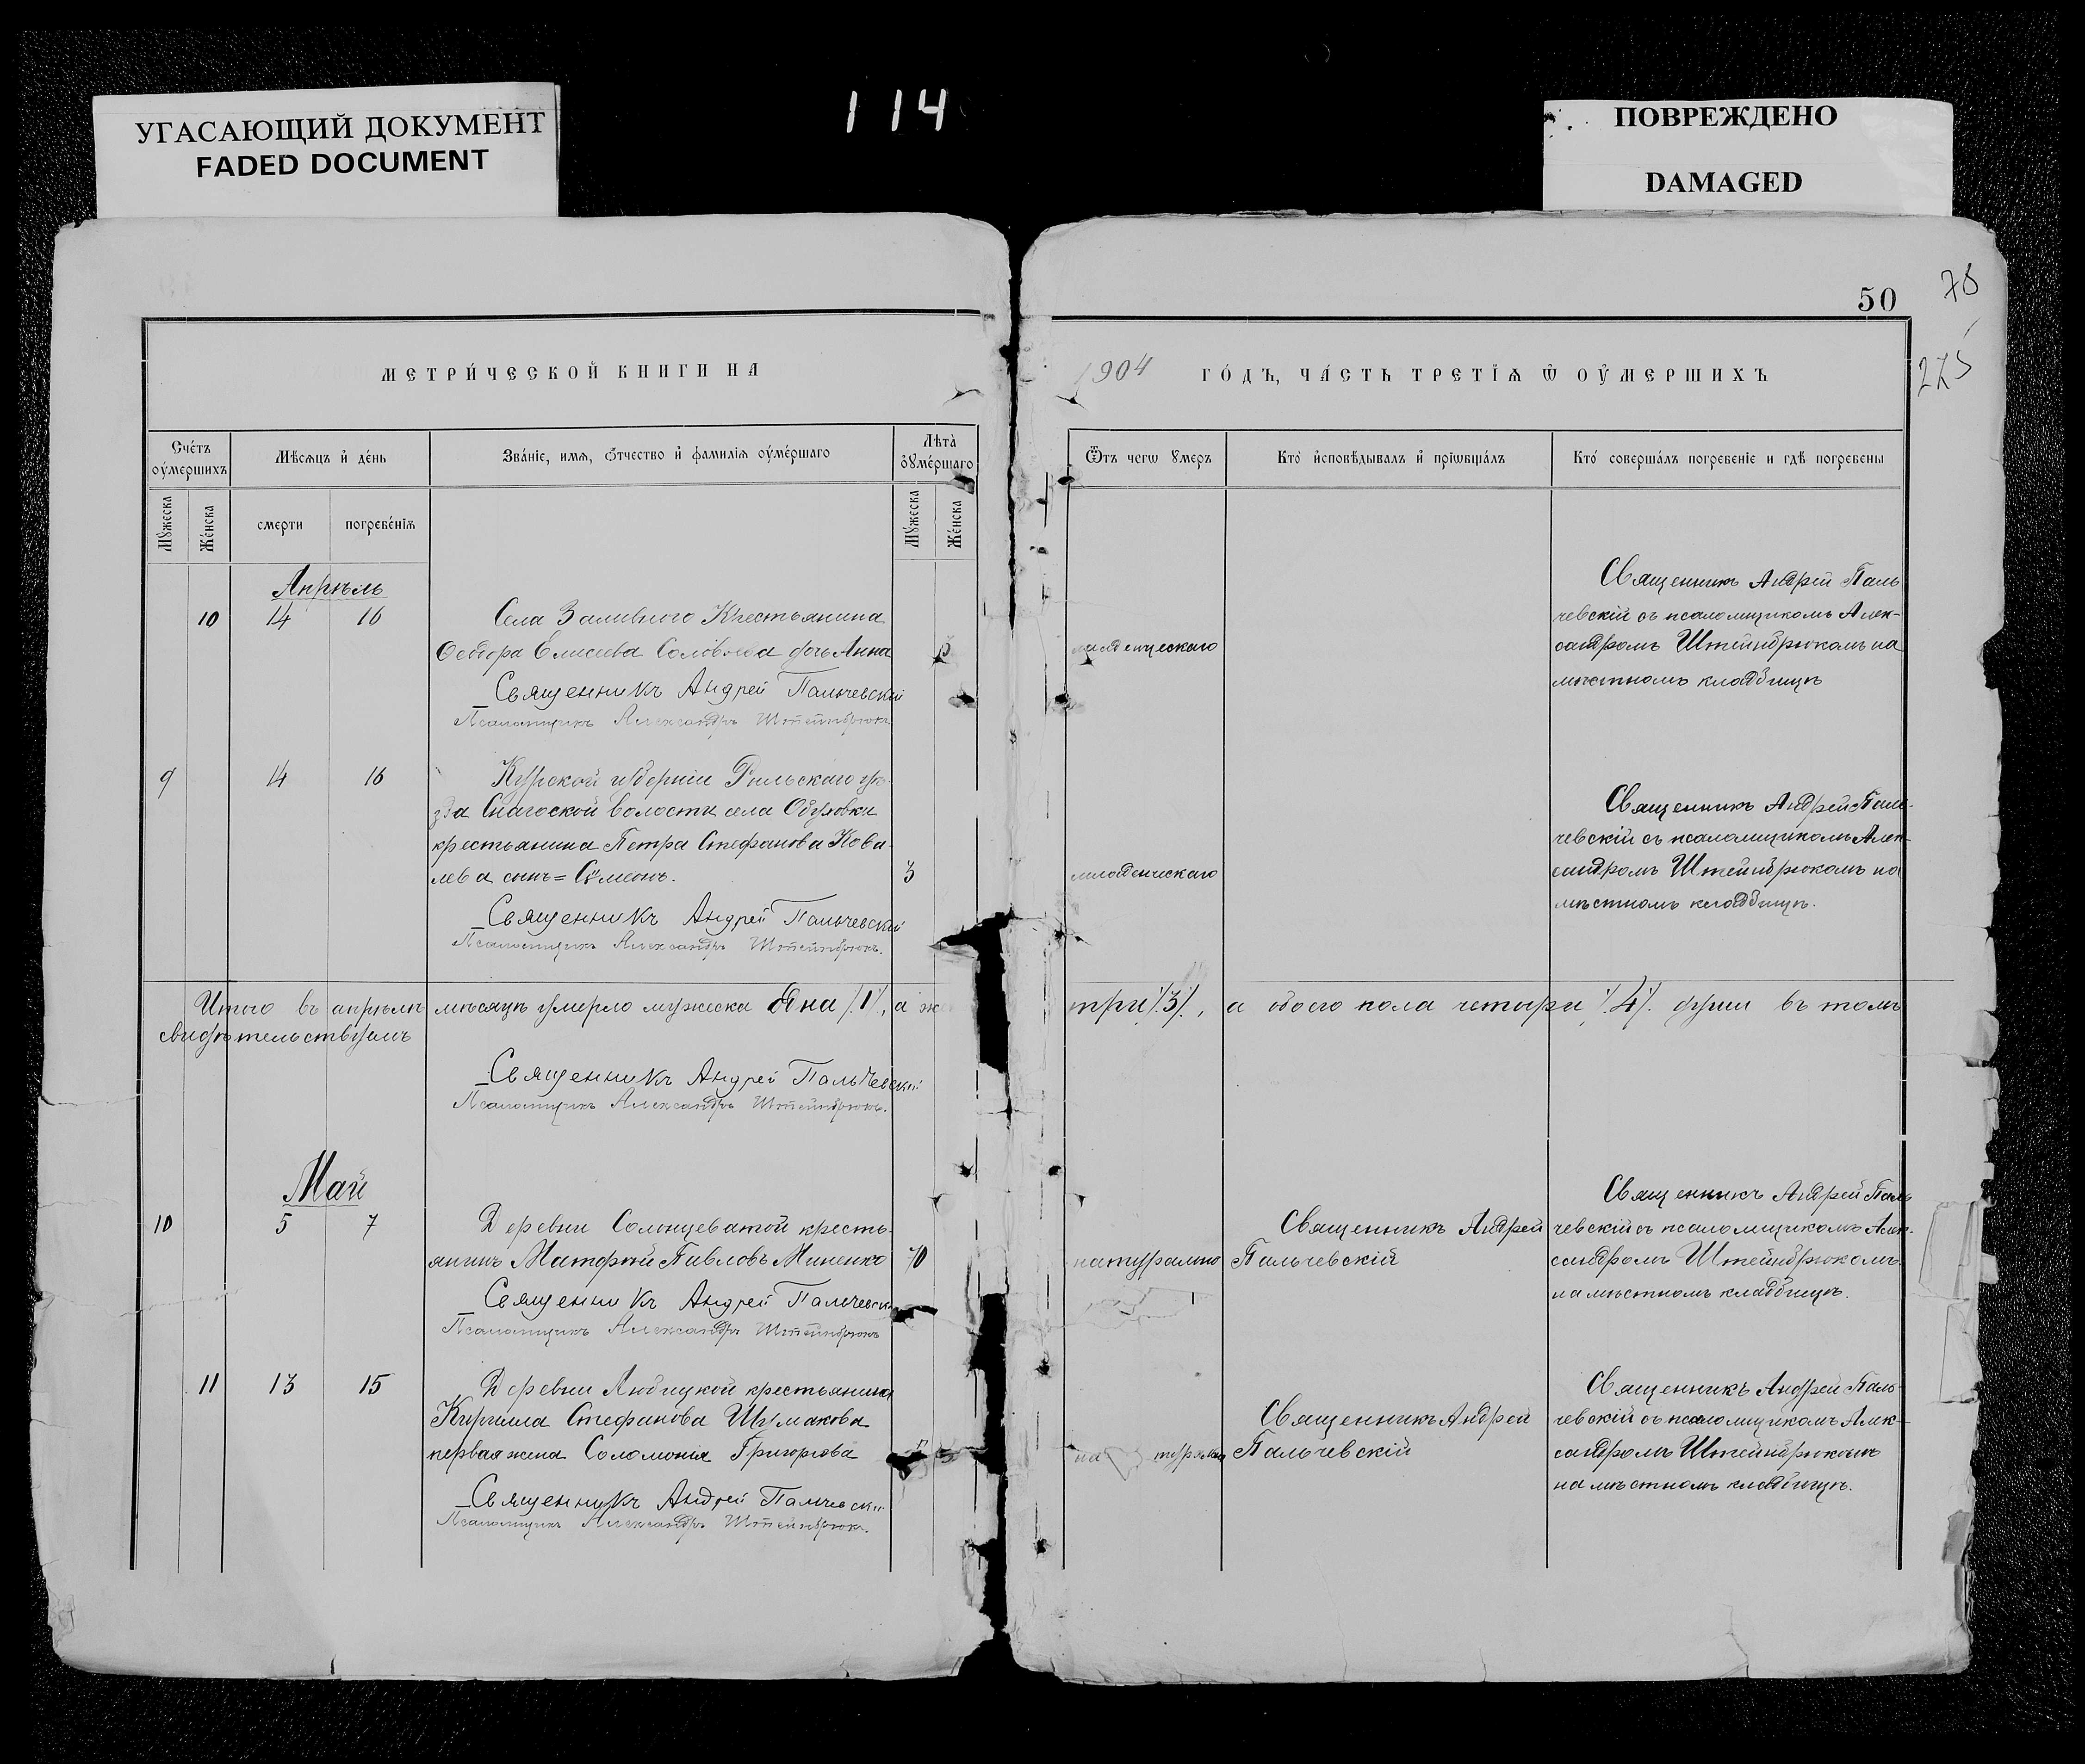 УГАСАЮЩИЙ ДОКУМЕНТ
FADED DOCUMENT
114
ПОВРЕЖДЕНО
DAMAGED
50
78
275
МЕТРИ́ЧЕСКОЙ КНИГИ НА
1904 ГО́ДЪ, ЧА́СТЬ ТРЕТІѦ Ѿ ОУ҆МЕРШИХЪ
Сче́тъ оу҆ме́ршихъ
Мѣ́сѧцъ и҆ де́нь
Зва́ніе, имѧ, ѻ҆тчество и҆ фамиліѧ оу҆ме́ршаго
Лѣта̀ оу҆ме́ршаго
Ѿ чегѡ ᲂумеръ
Кто̀ и҆сповѣ́дывалъ и҆ прїѡбща́лъ
Кто́ соверша́лъ погребеніе и гдѣ̀ погребены
Мꙋ́жеска
Же́нска
смерти
погребе́нїѧ
Мꙋ́жеска
Же́нска
Апрѣль
10 14 16
Села Заливного Крестьянина
Феодора Елисеева Соловьева дочь Анна
Священникъ Андрей Пальчевский
Псаломщикъ Александръ Штейнбрюкъ
младенческаго
Священникъ Андрей Паль
чевскій съ псаломщикомъ Алек-
сандромъ Штейнбрюкомъ на
мѣстномъ кладбищѣ
9 14 16
Курской губерніи Рыльскаго уѣ-
зда Снагоской волости села
крестьянина Петра Стефанова Кова-
лева сынъ = Сѵмеонъ. 3
Священникъ Андрей Пальчевский
Псаломщикъ Александръ Штейнбрюкъ.
младенческаго
Священникъ Андрей Паль-
чевскій съ псаломщикомъ Алек-
сандромъ Штейнбрюкомъ на
мѣстномъ кладбищѣ.
Итого въ апрѣлѣ мѣсяцѣ умерло мужеска одна /.1/., а ж три /.3/., а обоего пола четыре /.4/. души въ томъ
свидѣтельствуемъ
Священникъ Андрей Пальчевский
Псаломщикъ Александръ Штейнбрюкъ.
Май
10 5 7
Деревни Солонцеватой кресть-
янинъ Матфей Павловъ Миненко 70
Священникъ Андрей Пальчевски
Псаломщикъ Александръ Штейнбрюкъ
натурально
Священникъ Андрей
Пальчевскій
Священникъ Андрей Паль
чевскій съ псаломщикомъ Алек-
сандромъ Штейнбрюкомъ
на мѣстномъ кладбищѣ.
11 13 15
Деревни Любицкой крестьянина
Кирилла Стефанова Шумакова
первая жена Соломонія Григорьева
Священникъ Андрей Пальчевский
Псаломщикъ Александръ Штейнбрюкъ.
натурально
Священникъ Андрей
Пальчевскій
Священникъ Андрей Паль-
чевскій съ псаломщикомъ Алек-
сандромъ Штейнбрюкомъ
на мѣстномъ кладбищѣ.